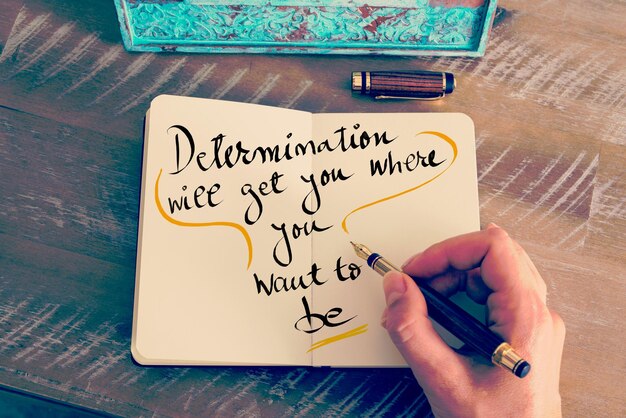 Determination
will get you where
you
want to
be